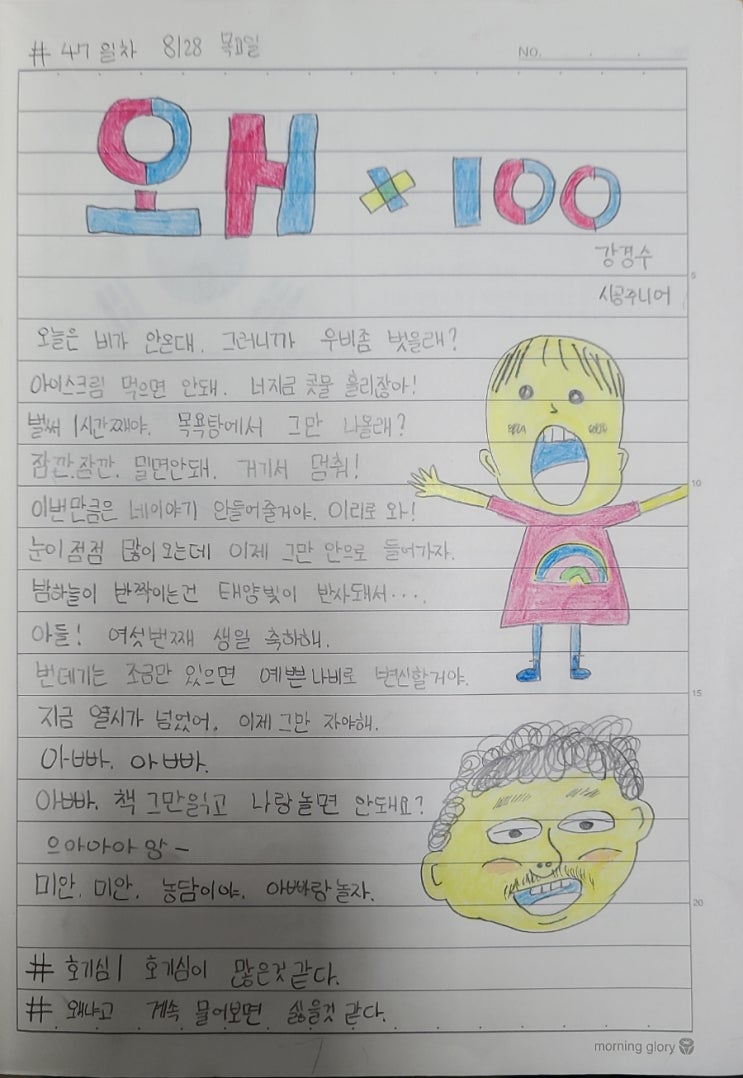 # 47일차 8/28 목요일
NO.
왜 × 100
강경수
5
시공주니어
오늘은 비가 안온대. 그러니까 우비좀 벗을래?
아이스크림 먹으면 안돼. 너지금 콧물 흘리잖아!
벌써 1시간째야. 목욕탕에서 그만 나올래?
잠깐.잠깐. 밀면안돼. 거기서 멈춰!
10
이번만큼은 네이야기 안들어줄거야. 이리로 와!
눈이 점점 많이 오는데 이제 그만 안으로 들어가자.
밤하늘이 반짝이는건 태양빛이 반사돼서....
아들! 여섯번째 생일 축하해.
번데기는 조금만 있으면 예쁜 나비로 변신할거야.
15
지금 열시가 넘었어. 이제 그만 자야해.
아빠. 아빠.
아빠. 책 그만읽고 나랑 놀면 안돼요?
으아아아 앙~
미안. 미안. 농담이야. 아빠랑 놀자.
20
# 호기심| 호기심이 많은것 같다.
# 왜냐고 계속 물어보면 싫을것 같다.
morning glory